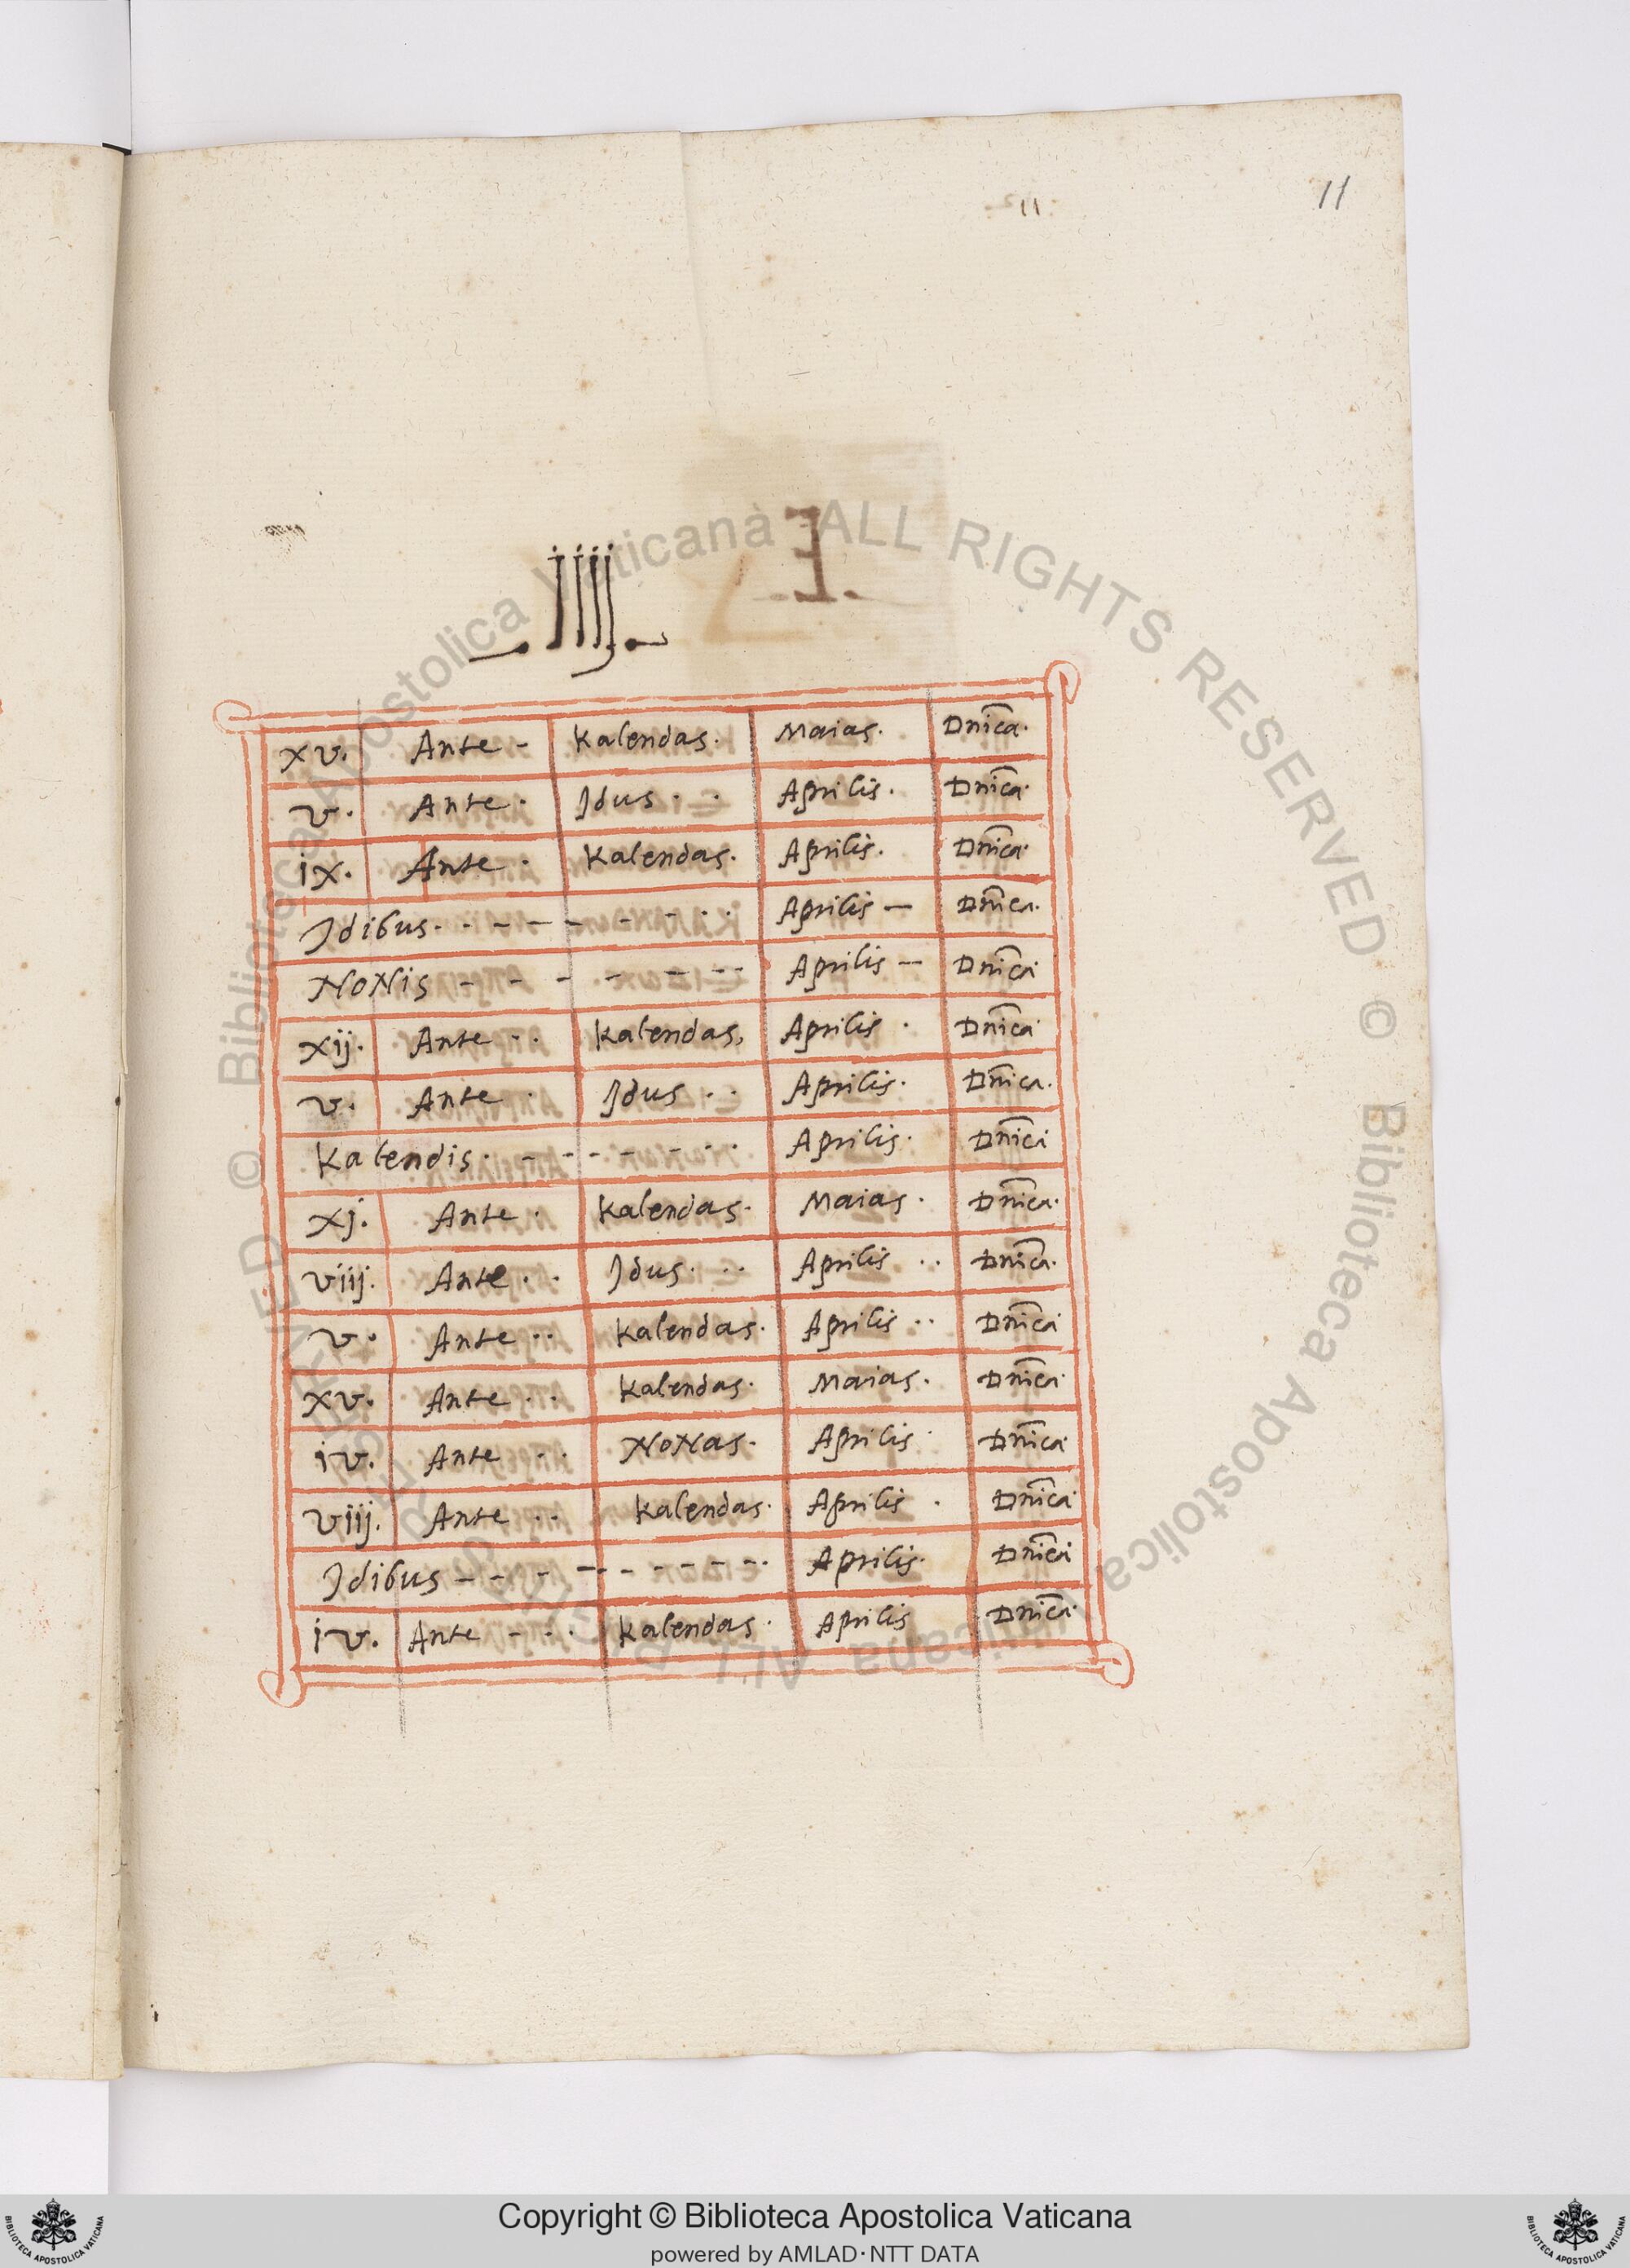 11
11
.iiij.
xv. Ante - Kalendas. Maias. Dn̄ica.
v. Ante. Jdus . . Aprilis. Dn̄ica.
ix. Ante. Kalendas. Aprilis. Dn̄ica.
Jdibus. . - - - - - - . . Aprilis — Dn̄ica.
NoNis - - - - - - - Aprilis — Dn̄ica
xij. Ante . . Kalendas. Aprilis . Dn̄ica
v. Ante . Jdus . . Aprilis. Dn̄ica.
Kalendis. - - - - - . . Aprilis. Dn̄ica
xj. Ante . Kalendas. Maias . Dn̄ica.
viij. Ante . . Jdus . . . Aprilis . . Dn̄ica.
v. Ante . . Kalendas. Aprilis . . Dn̄ica
xv. Ante . . Kalendas. Maias. Dn̄ica
iv. Ante . . NoNas. Aprilis . Dn̄ica
viij. Ante . . Kalendas. Aprilis . Dn̄ica
Jdibus - - - - - - - - - . Aprilis. Dn̄ica
iv. Ante - . . Kalendas . Aprilis Dn̄ica.
Biblioteca Apostolica Vaticana ALL RIGHTS RESERVED ©
Copyright © Biblioteca Apostolica Vaticana
powered by AMLAD·NTT DATA